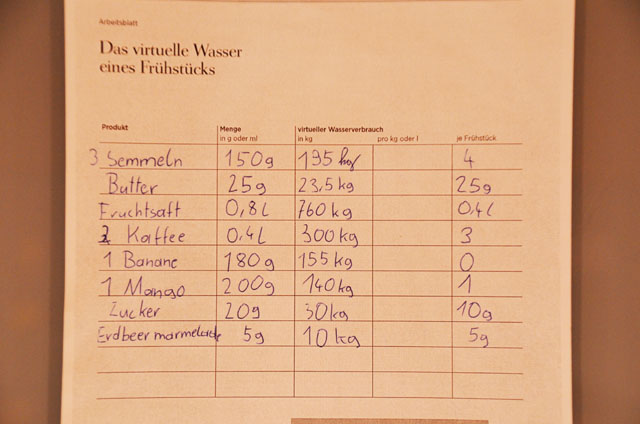 Arbeitsblatt
Das virtuelle Wasser
eines Frühstücks
Produkt Menge virtueller Wasserverbrauch
in g oder ml in kg pro kg oder l je Frühstück
3 Semmeln 150g 195 kg 4
Butter 25g 23,5 kg 25g
Fruchtsaft 0,8 L 760 kg 0,4 L
2 Kaffee 0,4 L 300 kg 3
1 Banane 180g 155 kg 0
1 Mango 200g 140kg 1
Zucker 20g 30kg 10g
Erdbeermarmelade 5g 10 kg 5g